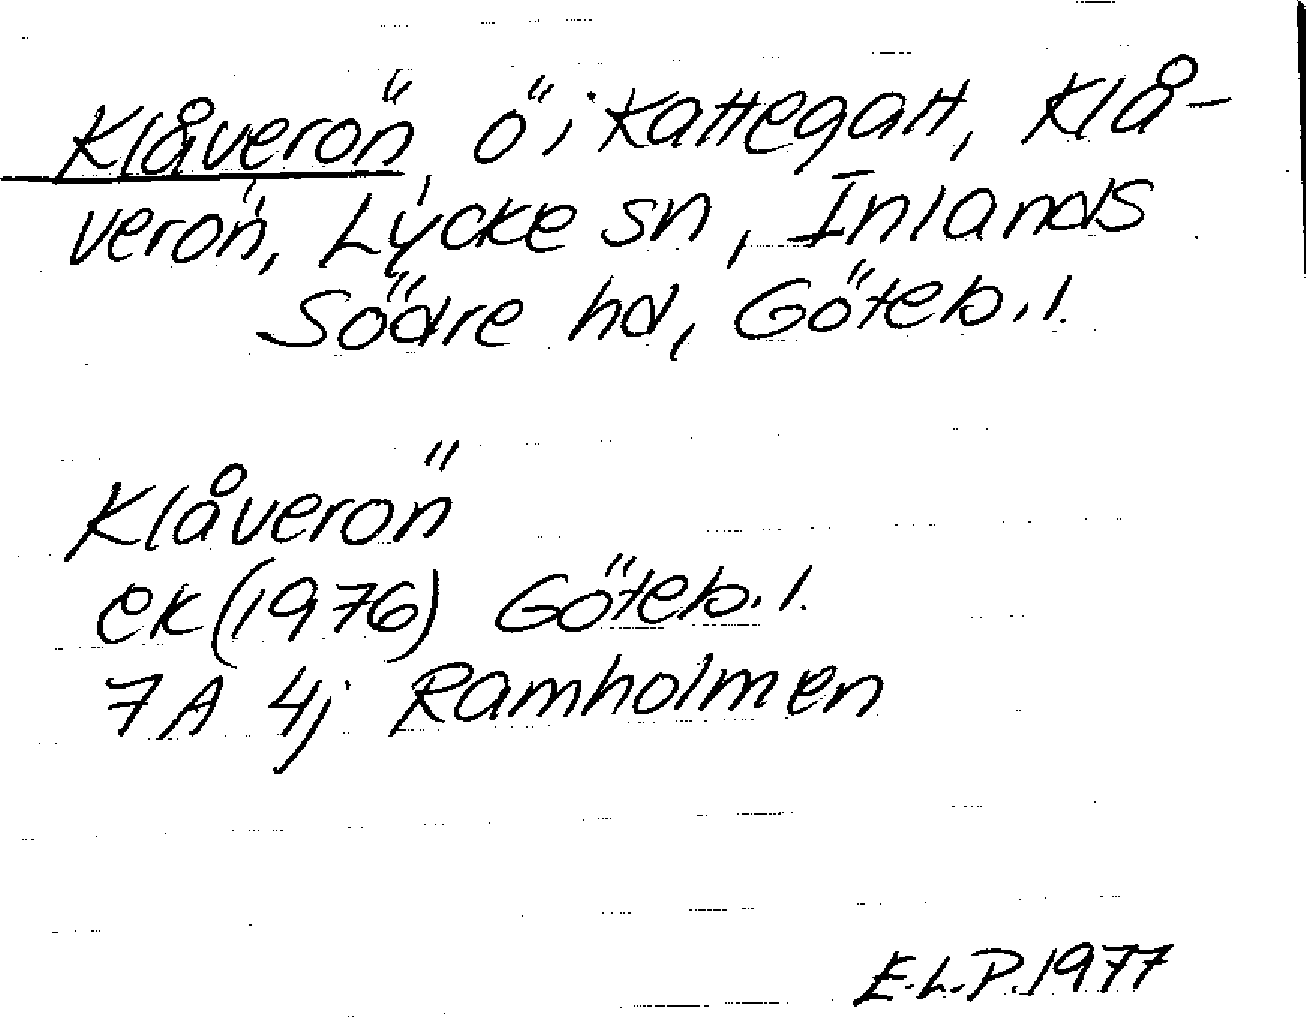 Klåverön, ö i Kattegatt, Klå-
verön, Lycke sn, Inlands
Södre hd, Göteb. l.
Klåverön
ek (1976) Göteb. l.
7A 4j Ramholmen
E.L.P. 1977